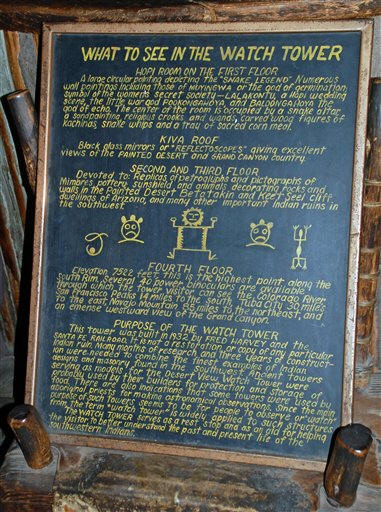 WHAT TO SEE IN THE WATCH TOWER
HOPI ROOM ON THE FIRST FLOOR
A large circular painting depicting the "SNAKE LEGEND" Numerous
wall paintings including those of MUYINGWA or the god of germination;
symbol of the women's secret society — LALAKYNTU, a Hopi wedding
scene, the little war god POOKONGAHOYA, and BALDONGAHOYA the
god of echo. The center of the room is occupied by a snake altar
a sandpainting, religious crooks and wands, carved wood figures of
kachinas, snake whips and a tray of sacred corn meal.
KIVA ROOF
Black glass mirrors or "REFLECTOSCOPES" giving excellent
views of the PAINTED DESERT and GRAND CANYON country.
SECOND AND THIRD FLOOR
Devoted to: Replicas of petroglyphs and pictographs of
Mimbres pottery, sunshield and animals decorating rocks and
walls in the Painted Desert Betatakin and Keet Seel Cliff
dwellings of Arizona, and many other important Indian ruins in
the southwest.
FOURTH FLOOR
Elevation, 7522 feet. This is the highest point along the
South Rim. Several 40 power binoculars are available
through which the tower visitor can see the Colorado River
San Francisco Peaks 14 miles to the south, Tuba City 30 miles
to the east, Navajo Mountain 98 miles to the northeast, and
an immense westward view of the Grand Canyon.
PURPOSE OF THE WATCH TOWER
This tower was built in 1932 by FRED HARVEY and the
SANTA FE RAILROAD. It is not a restoration or copy of any particular
Indian ruin. Many months of research, and three years of construct-
ion were needed to combine the finest examples of Indian
designs and masonry found in the southwest. Ancient towers
serving as models for the Desert View Watch Tower were
probably used by their builders for protection and storage of
food. There are also indications that some towers were used by
aboriginal priests for making astronomical observations. Since the main
purpose of such towers seems to be for people to observe or watch
from, the term "watch tower" is widely applied to such structures.
The WATCH TOWER serves as a rest stop and as an aid for helping
the visitor to better understand the past and present life of the
Southwestern Indians.